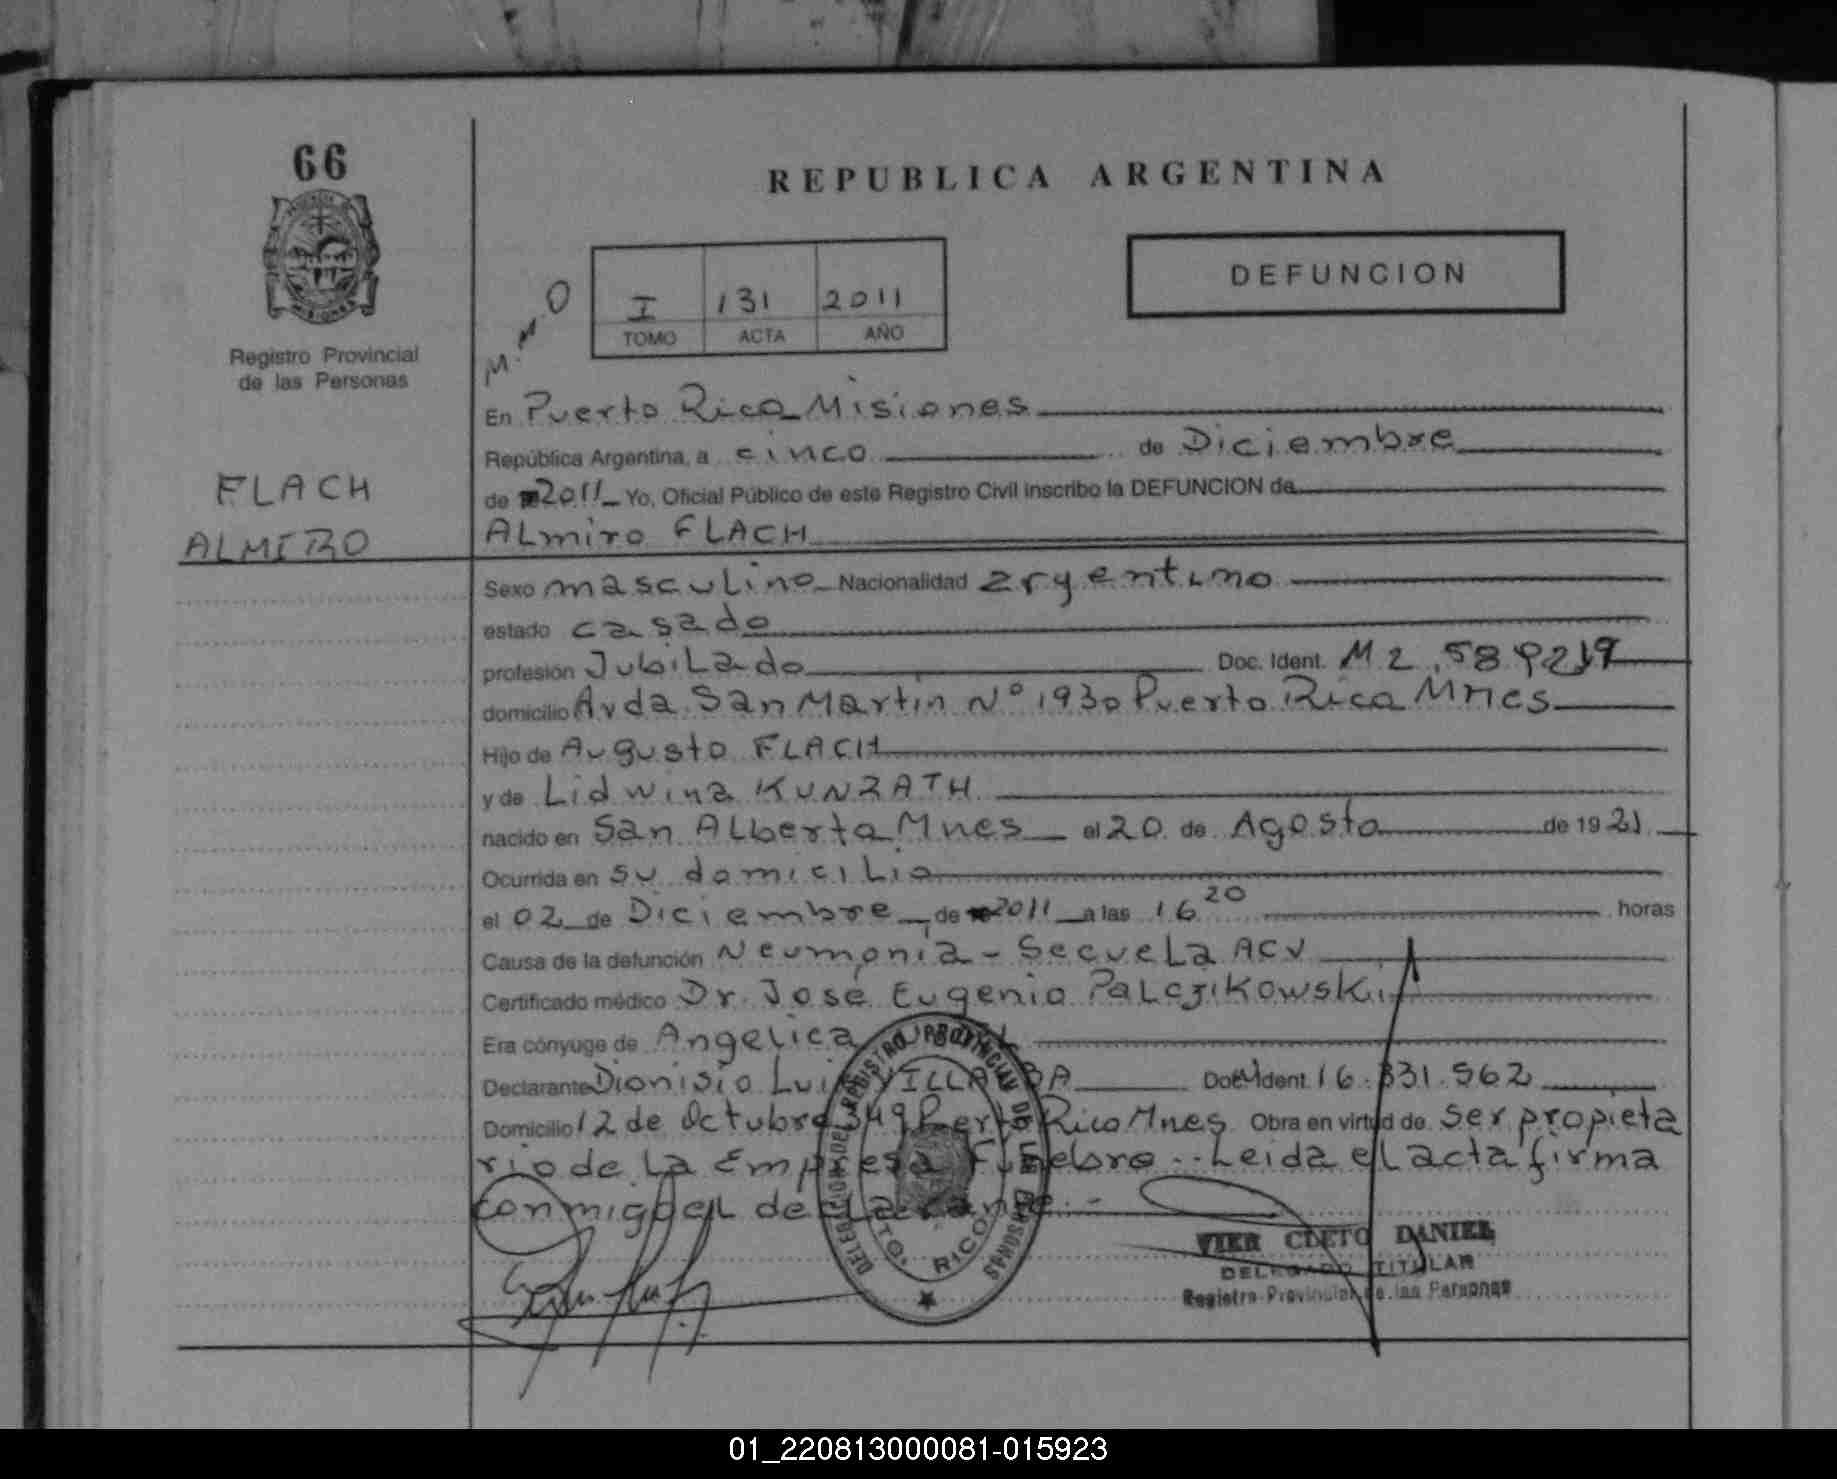 66
REPUBLICA ARGENTINA
DEFUNCION
M.M.O
I 131 2011
TOMO ACTA AÑO
MISIONES
Registro Provincial
de las Personas
FLACH
ALMIRO
En Puerto Rico Misiones
República Argentina, a cinco de Diciembre
de 2011 Yo, Oficial Público de este Registro Civil inscribo la DEFUNCION de
ALmiro FLACH
Sexo masculino Nacionalidad argentino
estado casado
profesión JubiLado Doc. Ident. M 2.589219
domicilio Avda San Martin Nº 1930 Puerto Rico Mnes
Hijo de Augusto FLACH
y de Lidwina KUNRATH
nacido en San ALberto Mnes el 20 de Agosto de 1921
Ocurrida en su domiciLio
el 02 de Diciembre de 2011 a las 16 20 horas
Causa de la defunción Neumonia - SecueLa ACV
Certificado médico Dr. José Eugenio PaLczikowski
Era cónyuge de Angelica
Declarante Dionisio Luis VILLALBA Doc. Ident. 16.831.562
Domicilio 12 de Octubre 549 Puerto Rico Mnes Obra en virtud de ser propieta
rio de La Empresa Funebre.. Leida el acta firma
conmigo el declarante.-
DELEGACION DEL REGISTRO PROVINCIAL DE LAS PERSONAS
PTO. RICO
VIER CLETO DANIEL
DELEGADO TITULAR
Registro Provincial de las Personas
01_220813000081-015923